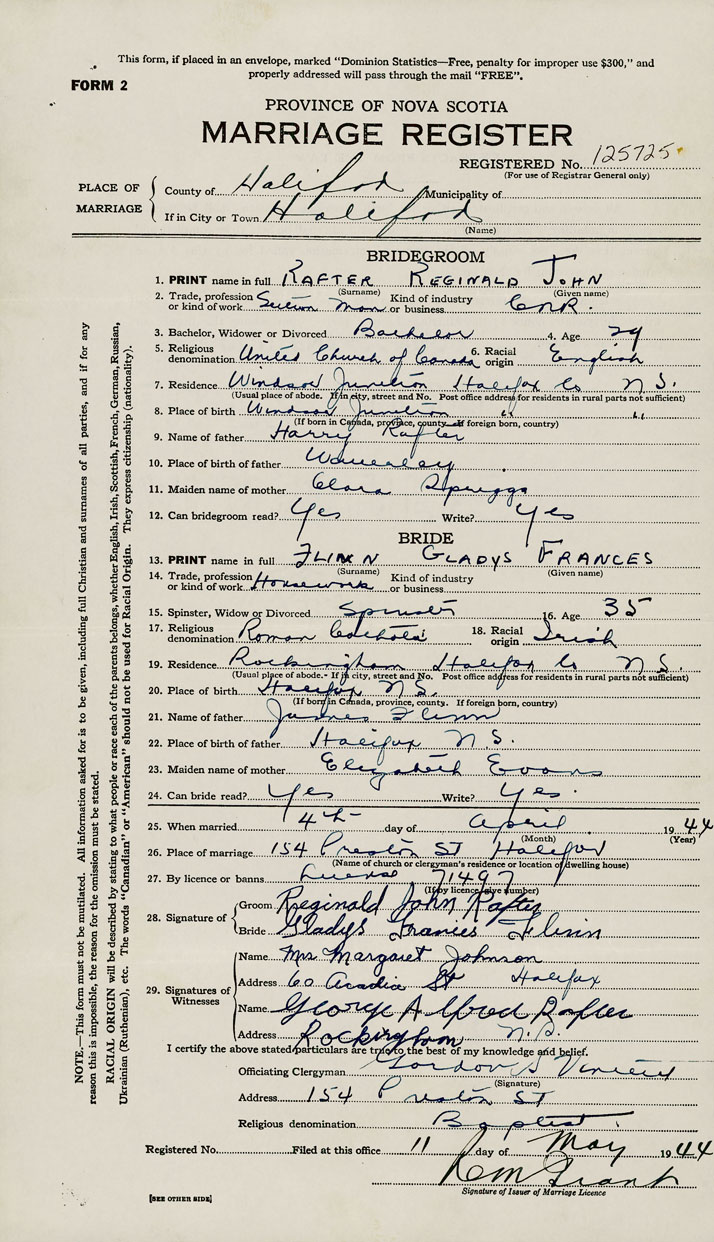 This form, if placed in an envelope, marked "Dominion Statistics—Free, penalty for improper use $300," and
properly addressed will pass through the mail "FREE".
FORM 2
PROVINCE OF NOVA SCOTIA
MARRIAGE REGISTER
REGISTERED No. 125725
(For use of Registrar General only)
PLACE OF MARRIAGE
County of Halifax Municipality of
If in City or Town Halifax
(Name)
BRIDEGROOM
1. PRINT name in full RAFTER REGINALD JOHN
(Surname) (Given name)
2. Trade, profession or kind of work Section Man Kind of industry or business CNR.
3. Bachelor, Widower or Divorced Bachelor 4. Age 29
5. Religious denomination United Church of Canada 6. Racial origin English
7. Residence Windsor Junction Halifax Co N.S.
(Usual place of abode. If in city, street and No. Post office address for residents in rural parts not sufficient)
8. Place of birth Windsor Junction " "
(If born in Canada, province, county. If foreign born, country)
9. Name of father Harry Rafter
10. Place of birth of father Waverley
11. Maiden name of mother Clara Spriggs
12. Can bridegroom read? Yes Write? Yes
BRIDE
13. PRINT name in full FLINN GLADYS FRANCES
(Surname) (Given name)
14. Trade, profession or kind of work Housework Kind of industry or business
15. Spinster, Widow or Divorced Spinster 16. Age 35
17. Religious denomination Roman Catholic 18. Racial origin Irish
19. Residence Rockingham Halifax Co N.S.
(Usual place of abode. If in city, street and No. Post office address for residents in rural parts not sufficient)
20. Place of birth Halifax N.S.
(If born in Canada, province, county. If foreign born, country)
21. Name of father James Flinn
22. Place of birth of father Halifax N.S.
23. Maiden name of mother Elizabeth Evans
24. Can bride read? Yes Write? Yes.
25. When married 4th day of April 1944
(Month) (Year)
26. Place of marriage 154 Preston ST Halifax
(Name of church or clergyman's residence or location of dwelling house)
27. By licence or banns License 71497
(If by licence give number)
28. Signature of
Groom Reginald John Rafter
Bride Gladys Frances Flinn
29. Signatures of Witnesses
Name Mrs Margaret Johnson
Address 60 Acadia St Halifax
Name George Alfred Rafter
Address Rockingham N.S.
I certify the above stated particulars are true to the best of my knowledge and belief.
Officiating Clergyman Gordon
(Signature)
Address 154 Preston ST
Religious denomination Baptist
Registered No. Filed at this office 11 day of May 1944
Grant
Signature of Issuer of Marriage Licence
[SEE OTHER SIDE]
NOTE.—This form must not be mutilated. All information asked for is to be given, including full Christian and surnames of all parties, and if for any
reason this is impossible, the reason for the omission must be stated.
RACIAL ORIGIN will be described by stating to what people or race each of the parents belongs, whether English, Irish, Scottish, French, German, Russian,
Ukrainian (Ruthenian), etc. The words "Canadian" or "American" should not be used for Racial Origin. They express citizenship (nationality).